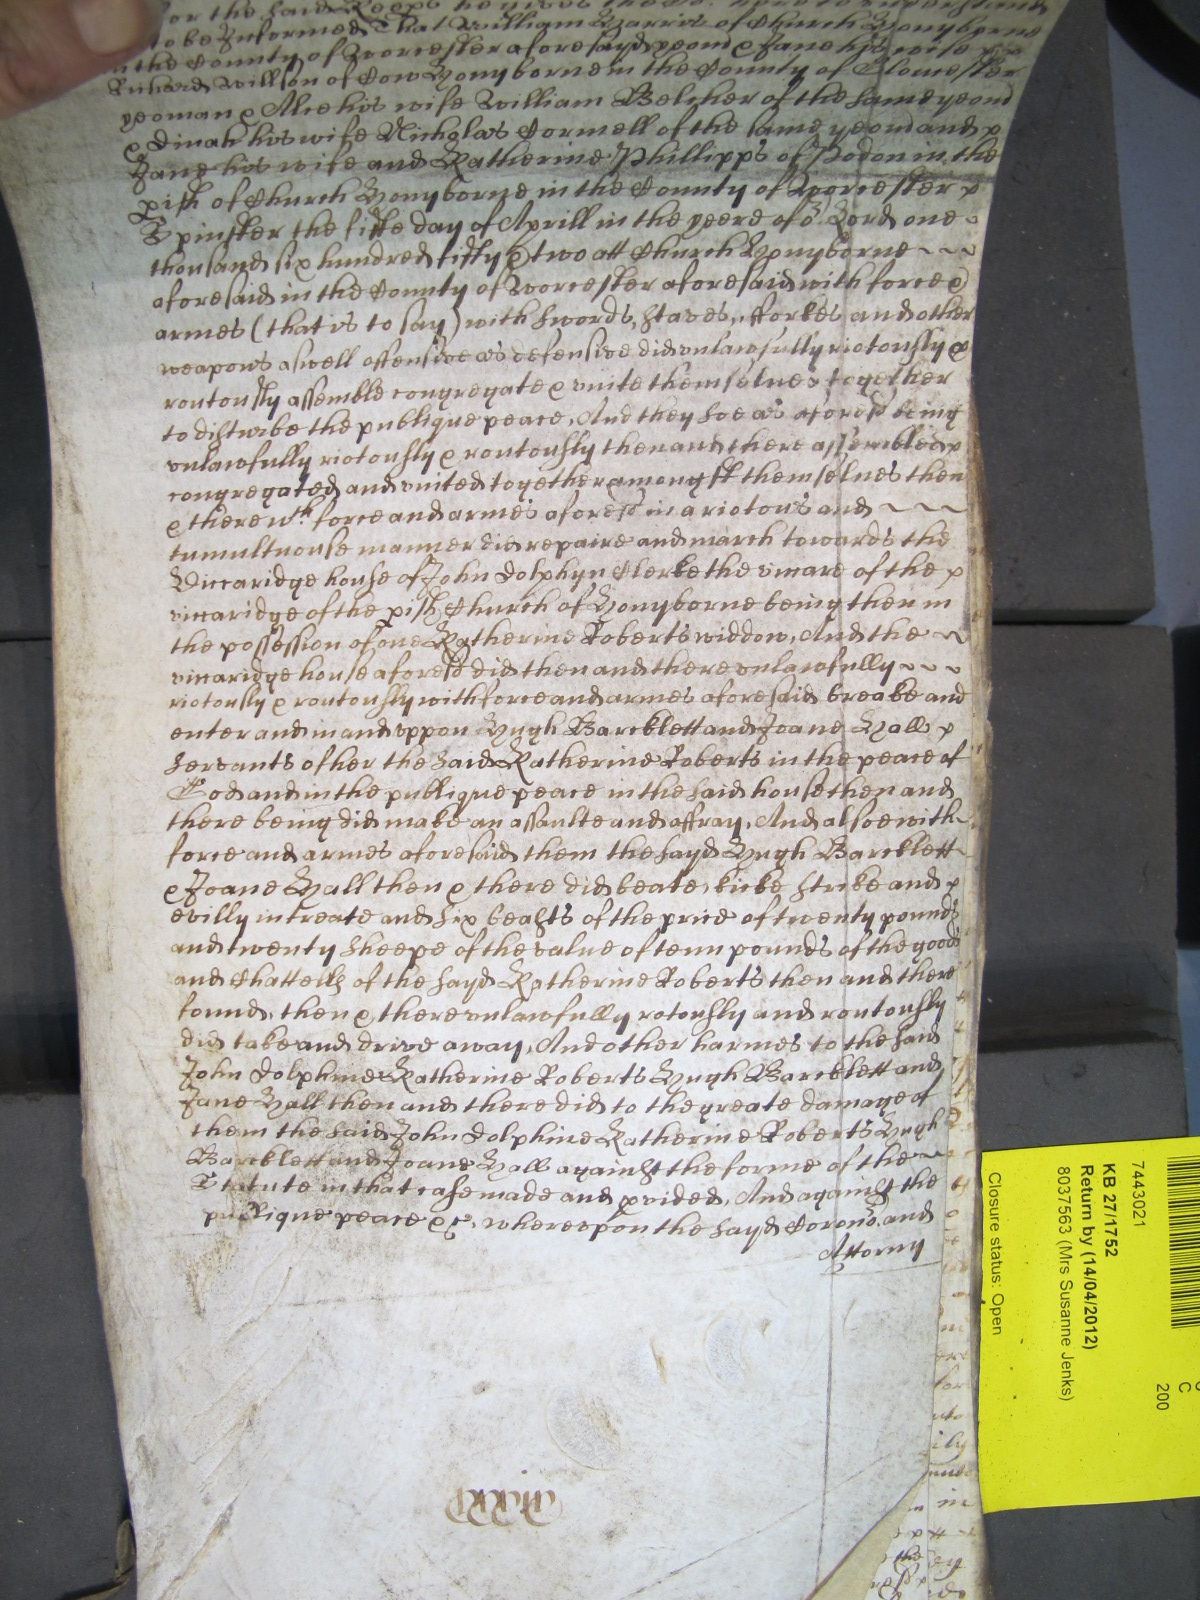 for the said Keeps he gives the Co:
to be Informed That William Harris of Church Honyborne
in the County of Worcester aforesayd yeom̄ & Jane his wife
Richard Willson of Cow Honyborne in the County of Gloucester
yeoman & Alce his wife William Belcher of the same yeom̄
& Dinah his wife Nicholas Cormell of the same yeom̄ and
Jane his wife and Katherine Phillipps of Podon in the
pish of Church Honyborne in the County of Worcester
Spinster the fifte day of Aprill in the yeere of oʳ Lord one
thousand six hundred fifty & two att Church Honyborne
aforesaid in the County of Worcester aforesaid with force &
armes (that is to say) with swords, staves, fforkes and other
weapons aswell offensive as defensive did unlawfully riotously &
routously assemble congregate & unite themselves together
to disturbe the publique peace, And they soe as aforesᵈ being
unlawfully riotously & routously then and there assembled
congregated and united together amongst themselves then
& there wᵗʰ force and armes aforesᵈ in a riotous and
tumultuouse manner did repaire and march towards the
Viccaridge house of John Dolphyn Clerke the vicare of the
viccaridge of the pish Church of Honyborne being then in
the possession of one Katherine Roberts widdow, And the
viccaridge house aforesᵈ did then and there unlawfully
riotously & routously with force and armes aforesaid breake and
enter and in and uppon Hugh Barcklett and Joane Hall
servants of her the said Katherine Roberts in the peace of
God and in the publique peace in the said house then and
there being did make an assaulte and affray, And alsoe with
force and armes aforesaid them the sayd Hugh Barcklett
& Joane Hall then & there did beate, kicke strike and
evilly intreate and six beasts of the price of twenty pounds
and twenty sheepe of the value of tenn pounds of the goods
and Chattells of the sayd Katherine Roberts then and there
found, then & there unlawfully rotously and routously
did take and drive away, And other harmes to the said
John Dolphine Katherine Roberts Hugh Barcklett and
Jane Hall then and there did to the greate damage of
them the said John Dolphine Katherine Roberts Hugh
Barcklett and Joane Hall against the forme of the
Statute in that case made and pvided, And against the
publique peace &c, whereupon the sayd Corono and
Attorny
7443021
KB 27/1752
Return by (14/04/2012)
8037563 (Mrs Susanne Jenks)
Closure status: Open
C
200